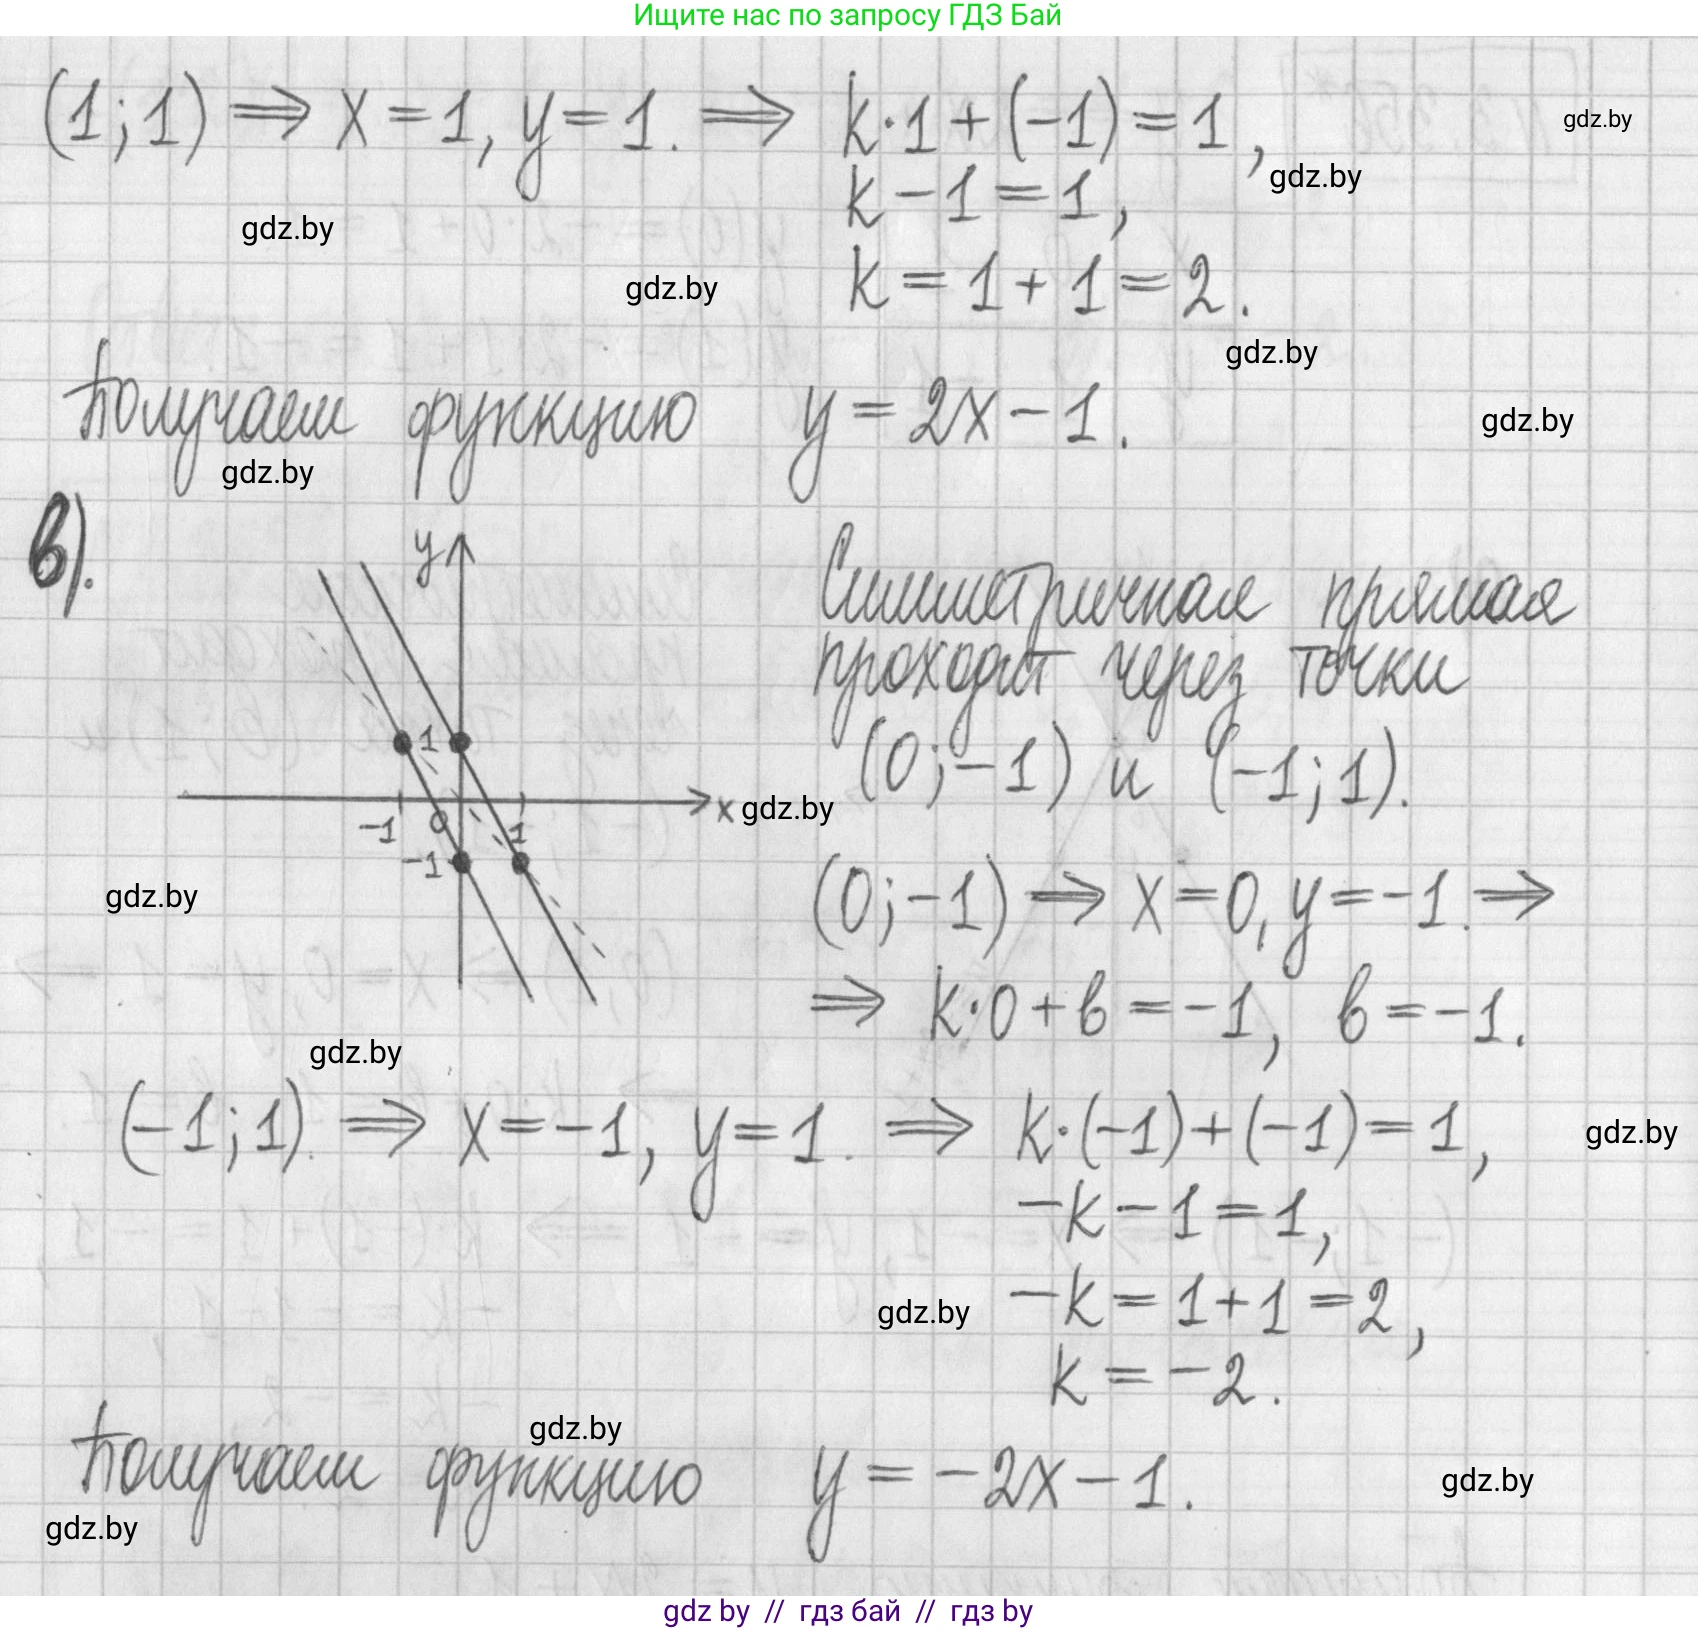 Ищите нас по запросу ГДЗ Бай
(1;1) ⇒ x = 1, y = 1. ⇒ k·1 + (-1) = 1,
gdz.by
gdz.by
k - 1 = 1,
gdz.by
k = 1 + 1 = 2.
gdz.by
gdz.by
Получаем функцию y = 2x - 1.
gdz.by
gdz.by
в).
y
1
-1 0 1
-1
x
gdz.by
Симметричная прямая
проходит через точки
(0;-1) и (-1;1).
gdz.by
(0;-1) ⇒ x = 0, y = -1. ⇒
⇒ k·0 + в = -1, в = -1.
gdz.by
(-1;1). ⇒ x = -1, y = 1. ⇒ k·(-1) + (-1) = 1,
gdz.by
-k - 1 = 1,
-k = 1 + 1 = 2,
gdz.by
k = -2.
gdz.by
Получаем функцию y = -2x - 1.
gdz.by
gdz.by
gdz by // гдз бай // гдз by